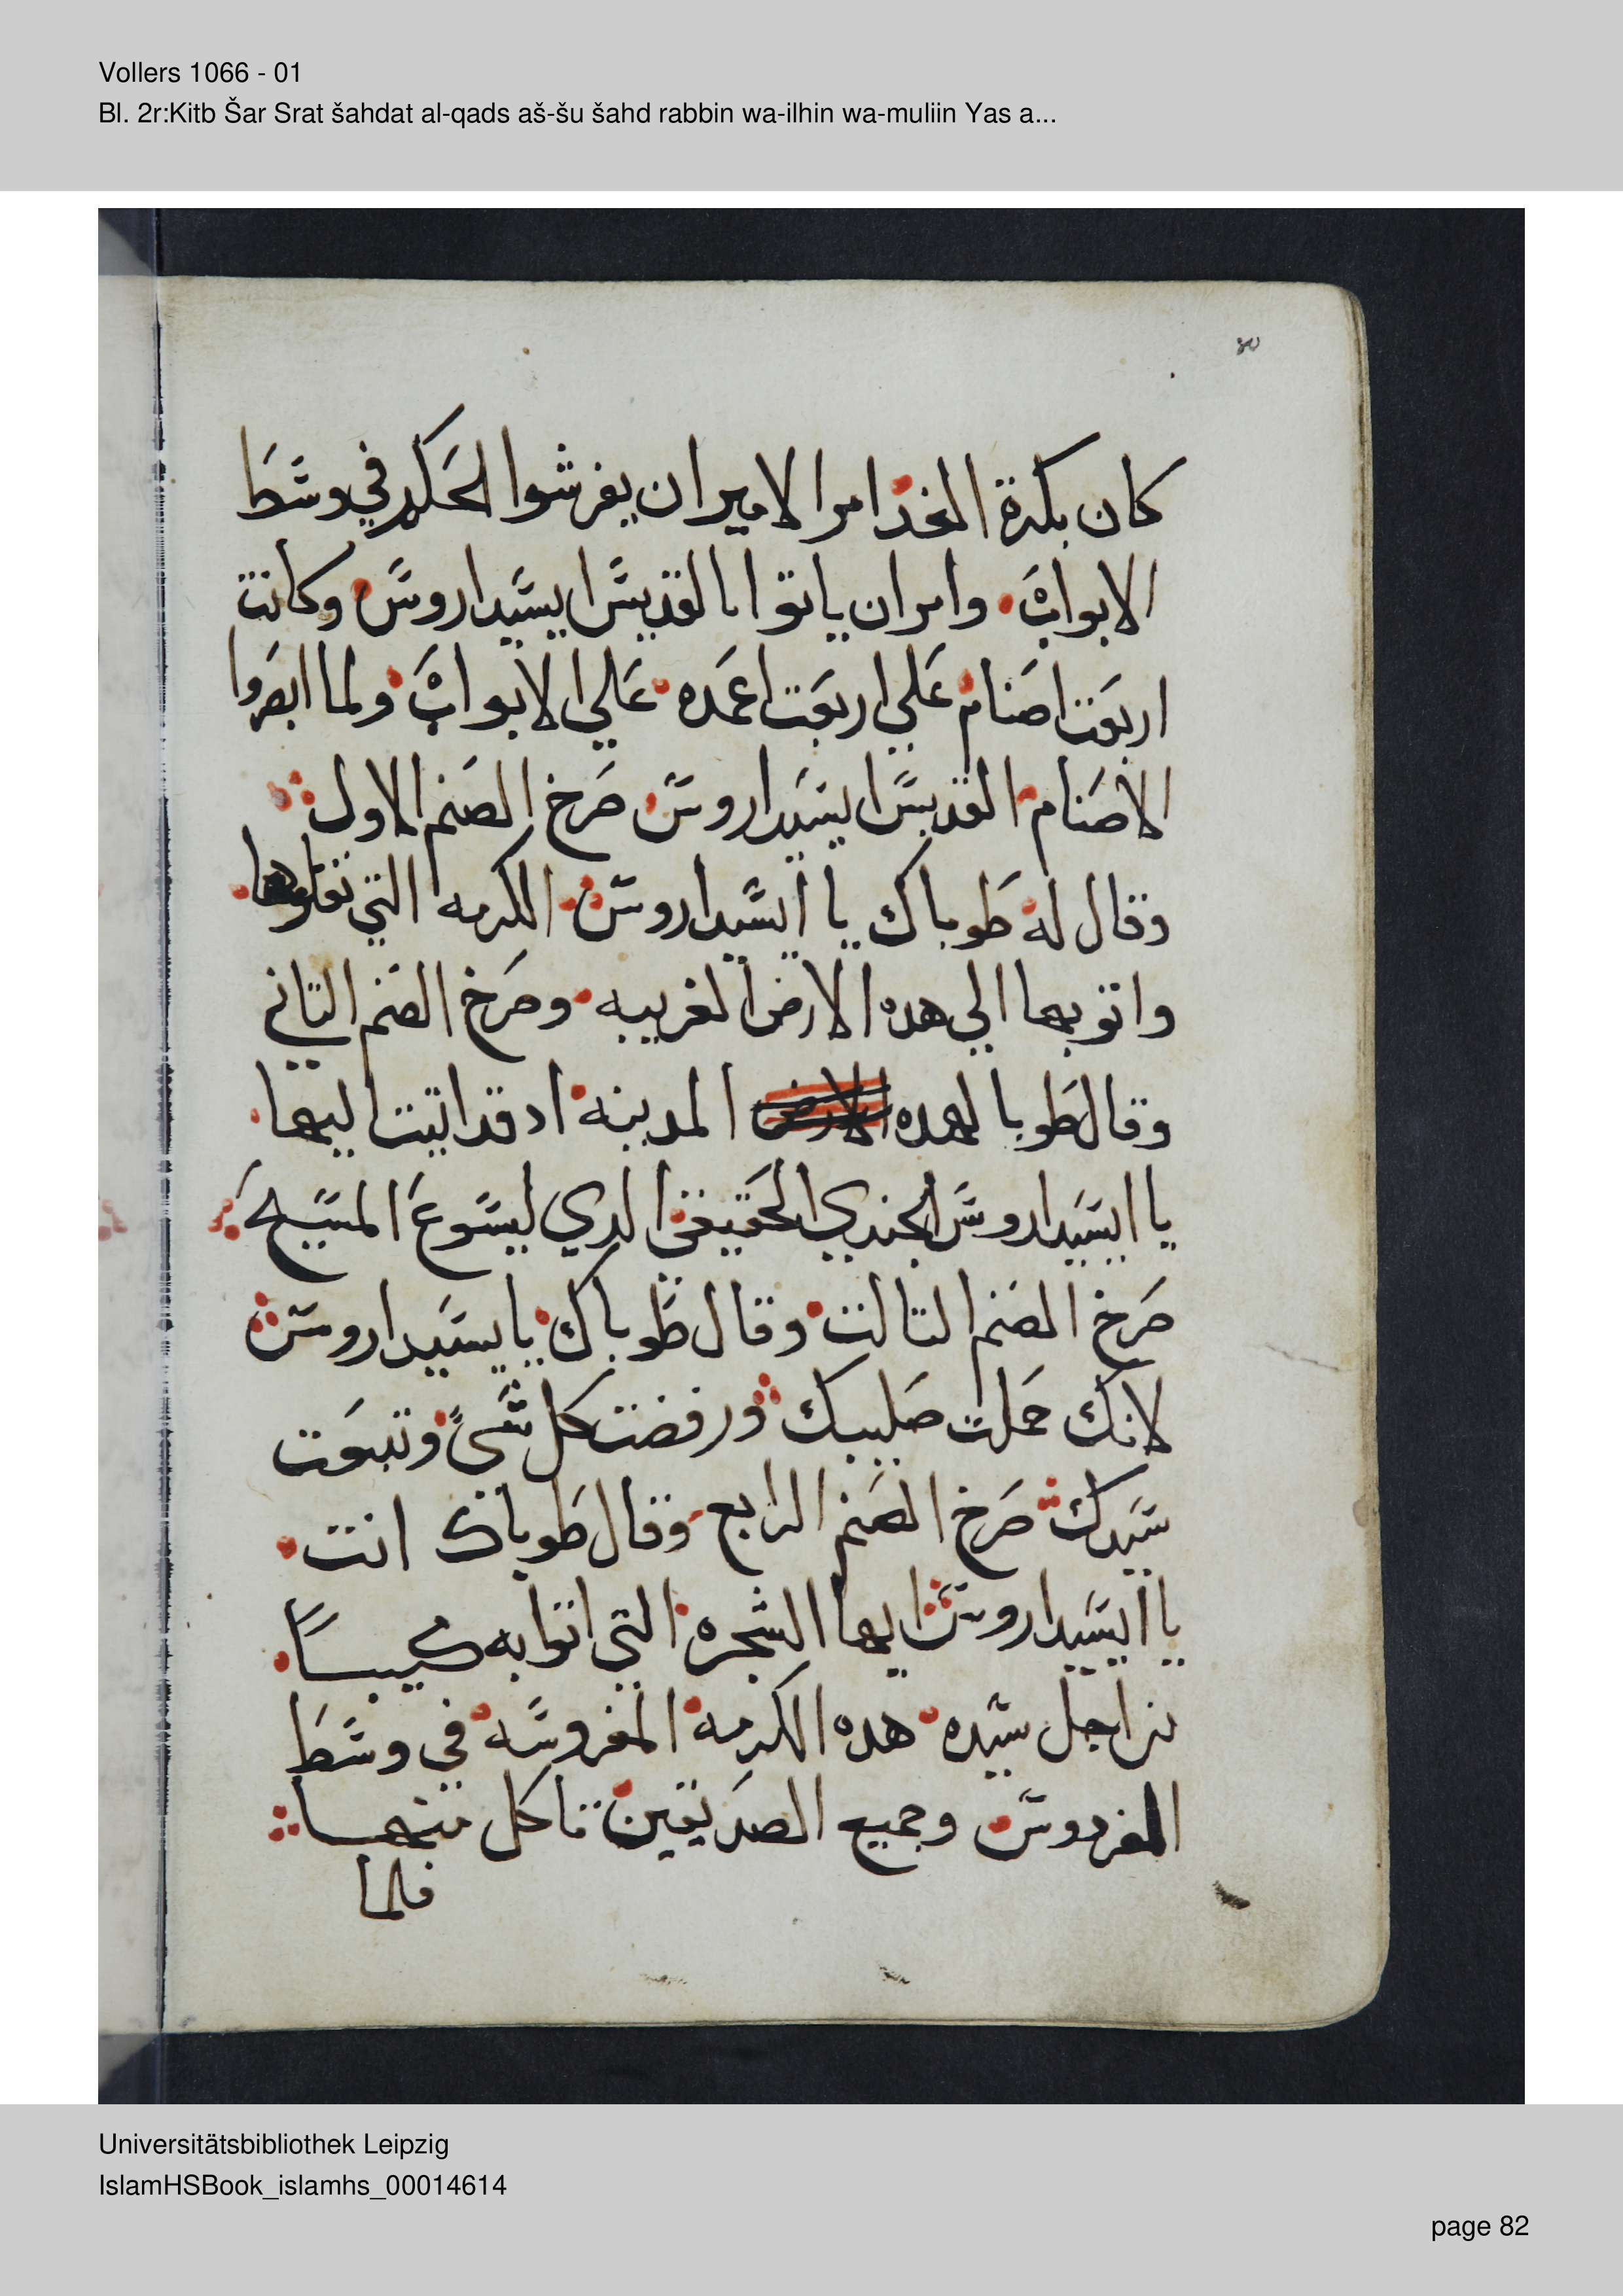 Vollers 1066 - 01
Bl. 2r:Kitb Šar Srat šahdat al-qads aš-šu šahd rabbin wa-ilhin wa-muliin Yas a...
كان بكرة الغد امر الامير ان يفرشوا الحكر في وسط
الابواب وامر ان ياتوا بالقديس ايسيداروس وكانت
اربعت اصنام علي اربعت اعمده علي الابواب ولما ابصروا
الاصنام القديس ايسيداروس صرخ الصنم الاول
وقال له طوباك يا ايسيداروس الكرمه التي نقلوها
واتو بها الي هده الارض الغريبه وصرخ الصنم التاني
وقال طوبا لهده الارض المدينه اد قد اتيت اليها
يا ايسيداروس الجندي الحقيقي الدي ليسوع المسيح
صرخ الصنم التالت وقال طوباك يايسيداروس
لانك حملت صليبك ورفضت كل شيً وتبعت
سيدك صرخ الصنم الرابع وقال طوباك انت
يا ايسيداروس ايها الشجره التي اتوا به كبيساً
من اجل سيده هده الكرمه المغروسه في وسط
الفردوس وجميع الصديقين تاكل منها
فلما
Universitätsbibliothek Leipzig
IslamHSBook_islamhs_00014614
page 82